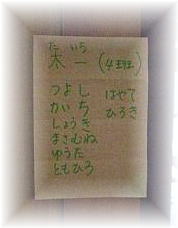 たいち
太一(4班)
つよし
かいち
しょうき
まさむね
ゆうた
ともひろ
はやて
ひろき